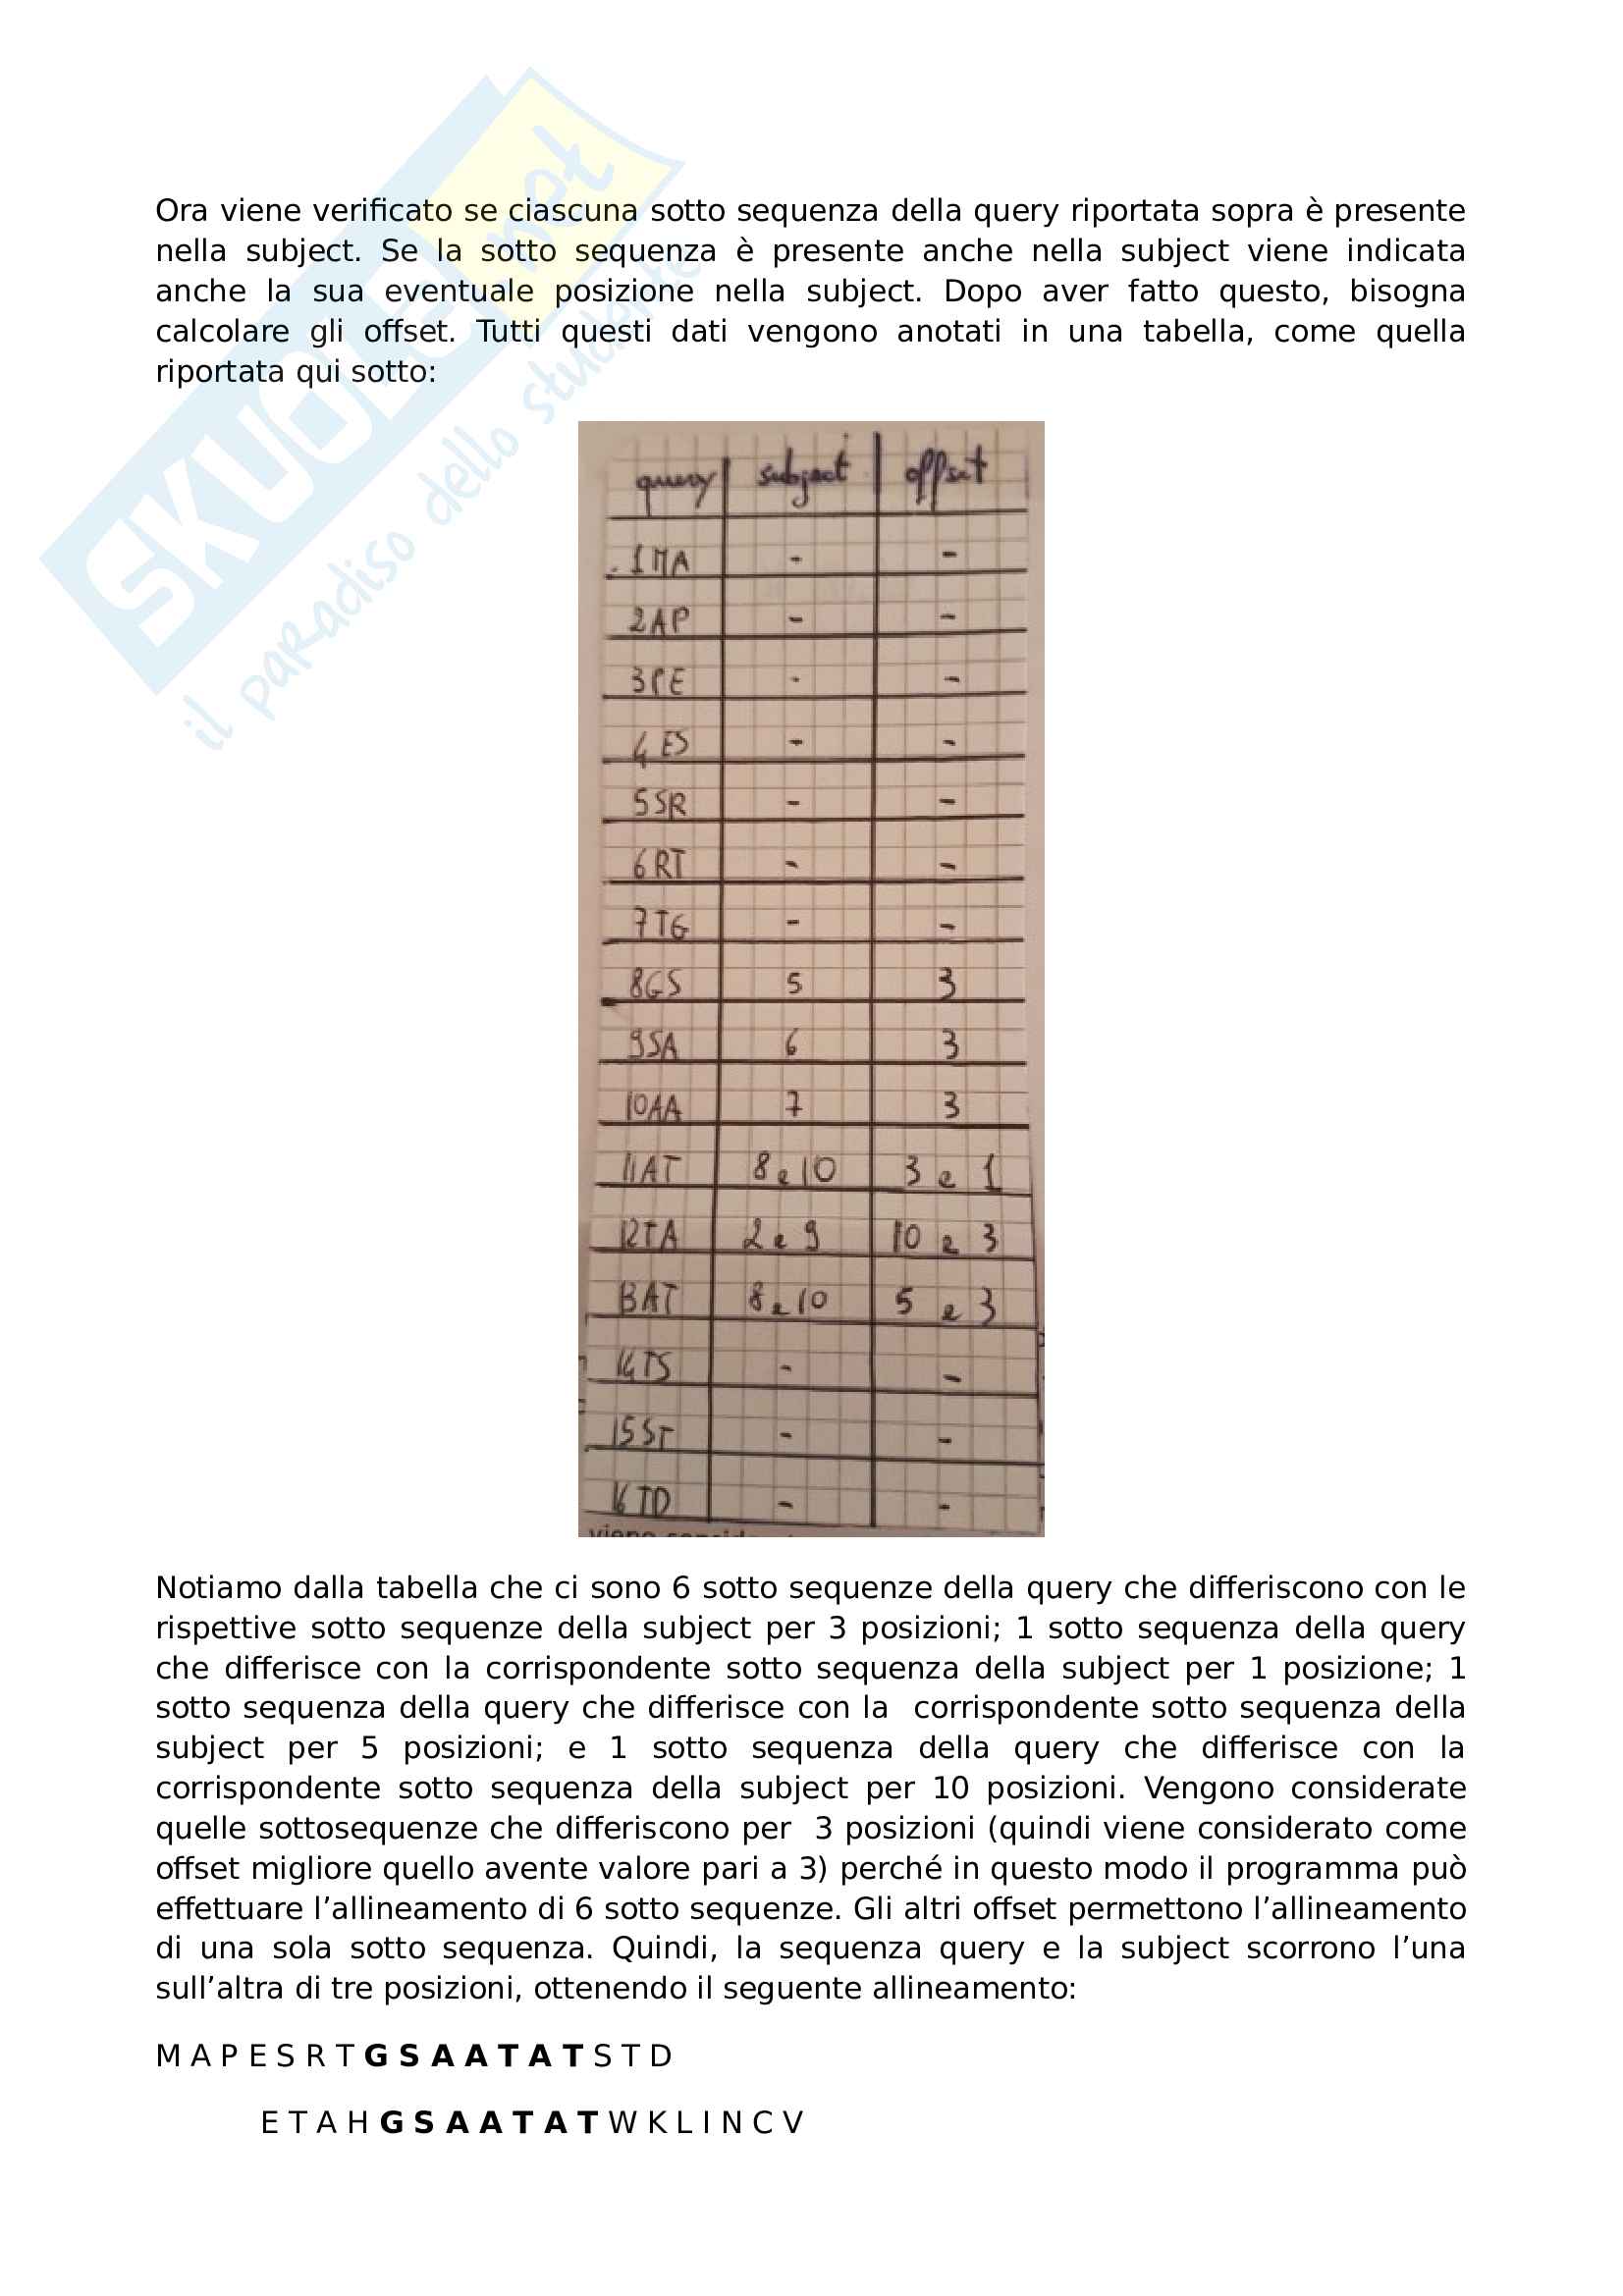 Ora viene verificato se ciascuna sotto sequenza della query riportata sopra è presente
nella subject. Se la sotto sequenza è presente anche nella subject viene indicata
anche la sua eventuale posizione nella subject. Dopo aver fatto questo, bisogna
calcolare gli offset. Tutti questi dati vengono anotati in una tabella, come quella
riportata qui sotto:
SKUOLA.net
il paradiso dello studente
query subject offset
1MA - -
2AP - -
3PE - -
4ES - -
5SR - -
6RT - -
7TG - -
8GS 5 3
9SA 6 3
10AA 7 3
11AT 8 e 10 3 e 1
12TA 2 e 9 10 e 3
13AT 8 e 10 5 e 3
14TS - -
15ST - -
16TD - -
Notiamo dalla tabella che ci sono 6 sotto sequenze della query che differiscono con le
rispettive sotto sequenze della subject per 3 posizioni; 1 sotto sequenza della query
che differisce con la corrispondente sotto sequenza della subject per 1 posizione; 1
sotto sequenza della query che differisce con la corrispondente sotto sequenza della
subject per 5 posizioni; e 1 sotto sequenza della query che differisce con la
corrispondente sotto sequenza della subject per 10 posizioni. Vengono considerate
quelle sottosequenze che differiscono per 3 posizioni (quindi viene considerato come
offset migliore quello avente valore pari a 3) perché in questo modo il programma può
effettuare l’allineamento di 6 sotto sequenze. Gli altri offset permettono l’allineamento
di una sola sotto sequenza. Quindi, la sequenza query e la subject scorrono l’una
sull’altra di tre posizioni, ottenendo il seguente allineamento:
M A P E S R T G S A A T A T S T D
E T A H G S A A T A T W K L I N C V